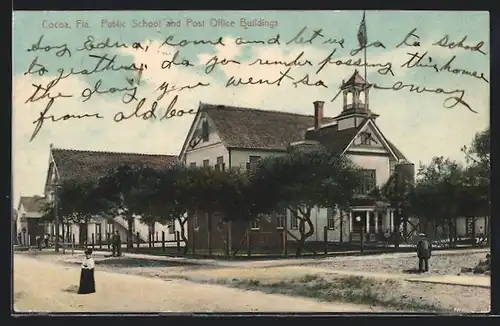 Cocoa, Fla. Public School and Post Office Buildings
Say Edna, come and let us go to School
together. Do you remember passing this house
the day you went so far away
from old Coc